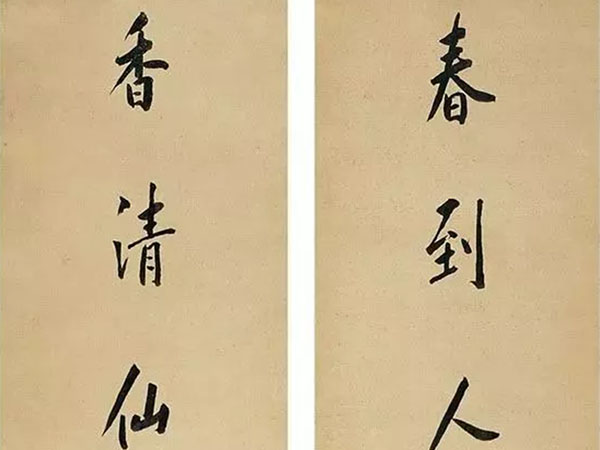 春到人
香清仙